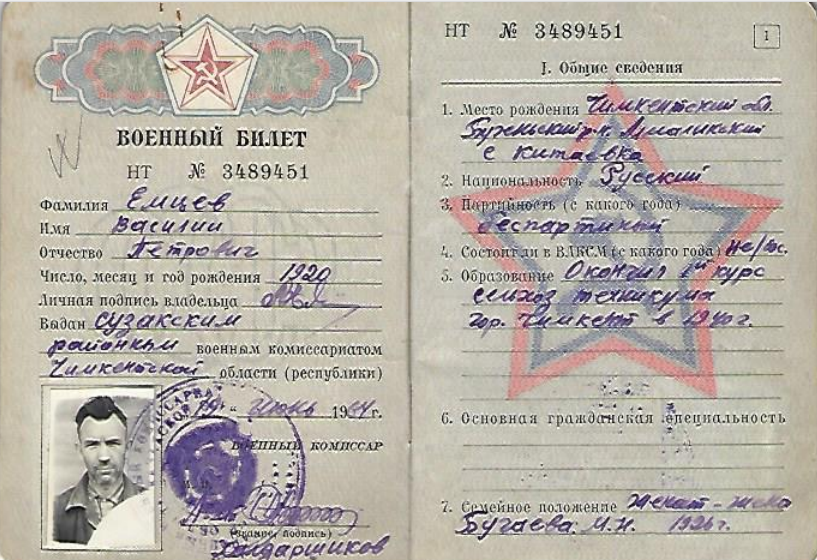 ВОЕННЫЙ БИЛЕТ
НТ № 3489451
Фамилия Емцев
Имя Василий
Отчество Петрович
Число, месяц и год рождения 1920
Личная подпись владельца
Выдан Сузакским
районным военным комиссариатом
Чимкентской области (республики)
июнь 1964 г.
ВОЕННЫЙ КОМИССАР
(звание, подпись)
НТ № 3489451
1
I. Общие сведения
1. Место рождения Чимкентский обл.
с Китаевка
2. Национальность Русский
3. Партийность (с какого года)
беспартийный
4. Состоял ли в ВЛКСМ (с какого года)
5. Образование Окончил курс
сельхоз техникума
гор. Чимкент в 1940 г.
6. Основная гражданская специальность
7. Семейное положение женат - жена
Бугаева М.И. 1926 г.